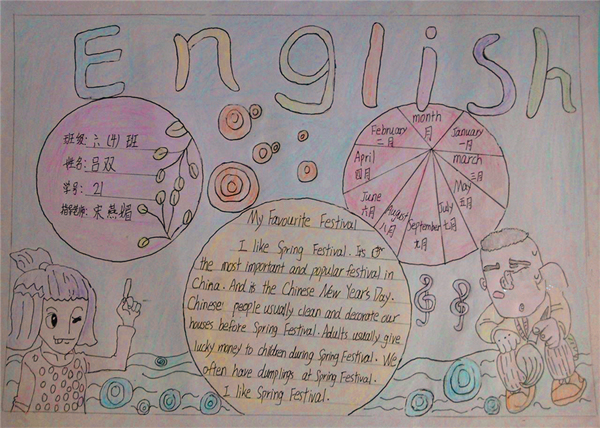 English
班级: 六(4)班
姓名: 吕双
学号: 21
指导老师: 宋燕媚
month
月
January
一月
February
二月
march
三月
April
四月
May
五月
June
六月
July
七月
August
八月
September
九月
My Favourite Festival
I like Spring Festival. Its
the most important and popular festival in
China. And is the Chinese New Year's Day.
Chinese people usually clean and decorate our
houses before Spring Festival. Adults usually give
lucky money to children during Spring Festival. We
often have dumplings at Spring Festival.
I like Spring Festival.